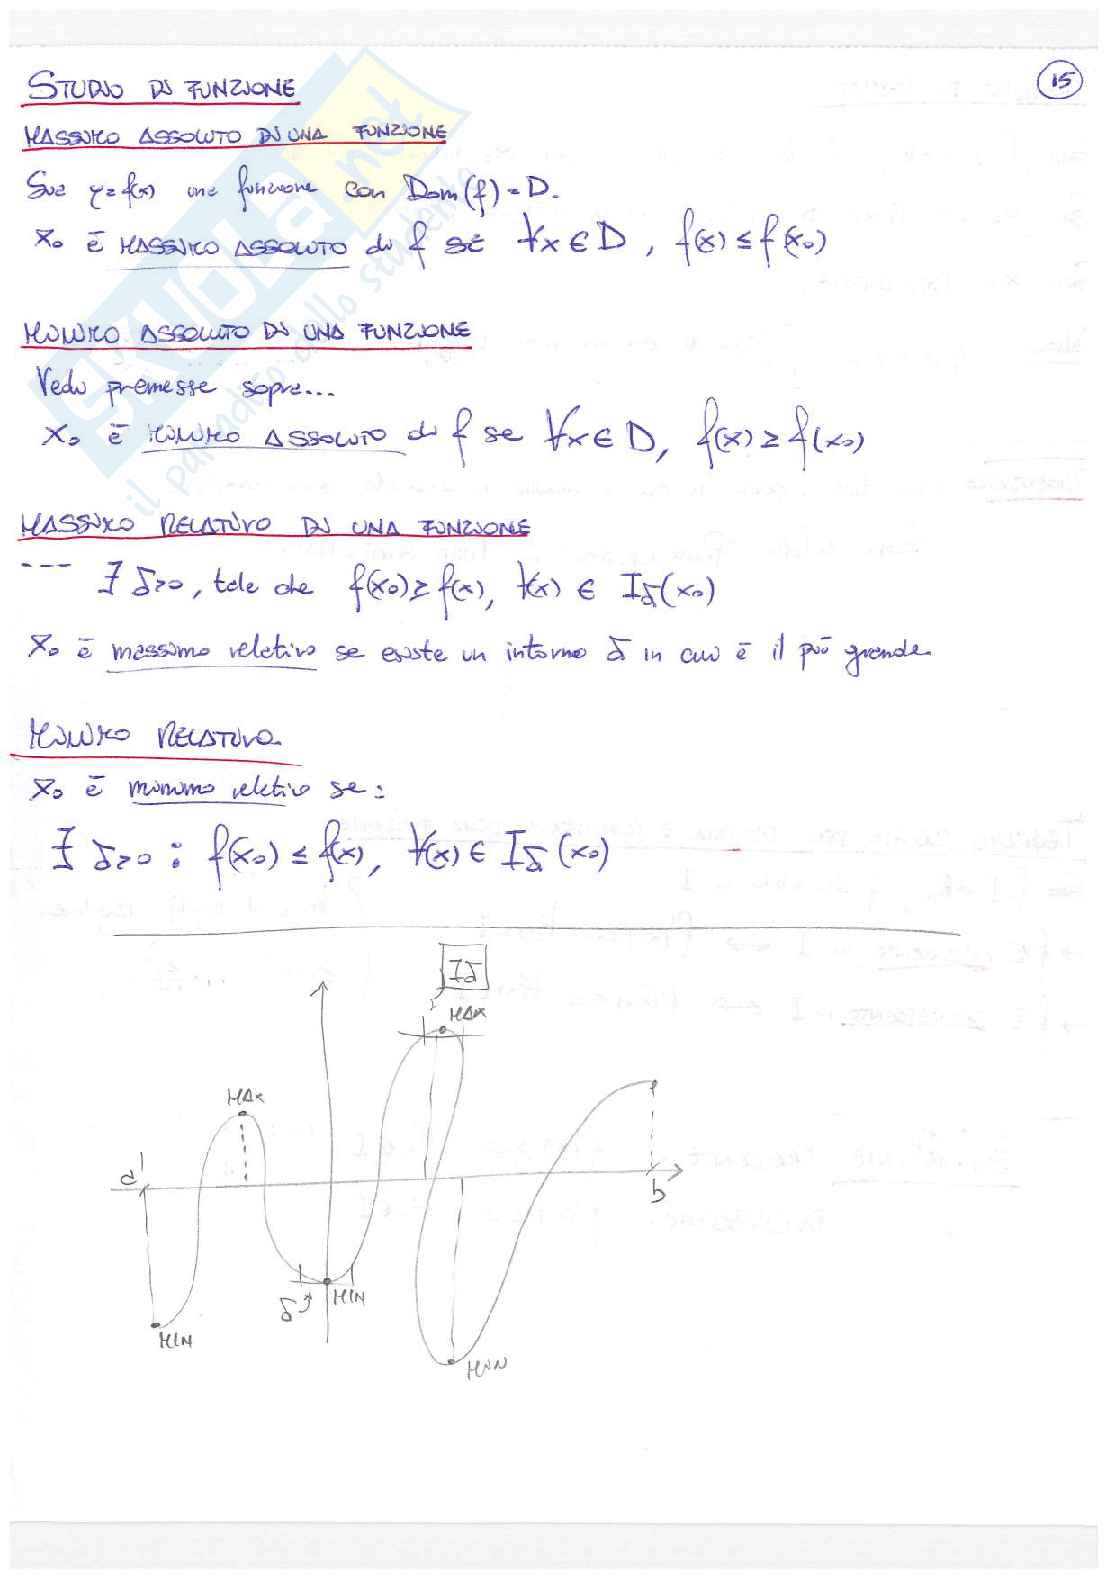 STUDIO DI FUNZIONE
15
MASSIMO ASSOLUTO DI UNA FUNZIONE
Sia y=f(x) una funzione con Dom(f)=D.
x₀ è MASSIMO ASSOLUTO di f se ∀x∈D, f(x)≤f(x₀)
MINIMO ASSOLUTO DI UNA FUNZIONE
Vedi premesse sopra...
x₀ è MINIMO ASSOLUTO di f se ∀x∈D, f(x)≥f(x₀)
MASSIMO RELATIVO DI UNA FUNZIONE
--- ∃ δ>0, tale che f(x₀)≥f(x), ∀(x) ∈ Iδ(x₀)
x₀ è massimo relativo se esiste un intorno δ in cui è il più grande.
MINIMO RELATIVO.
x₀ è minimo relativo se:
∃ δ>0 : f(x₀)≤f(x), ∀(x)∈ Iδ(x₀)
Iδ
MAX
MAX
a
b
δ
MIN
MIN
MIN
SKUOLA.net
il paradiso dello studente